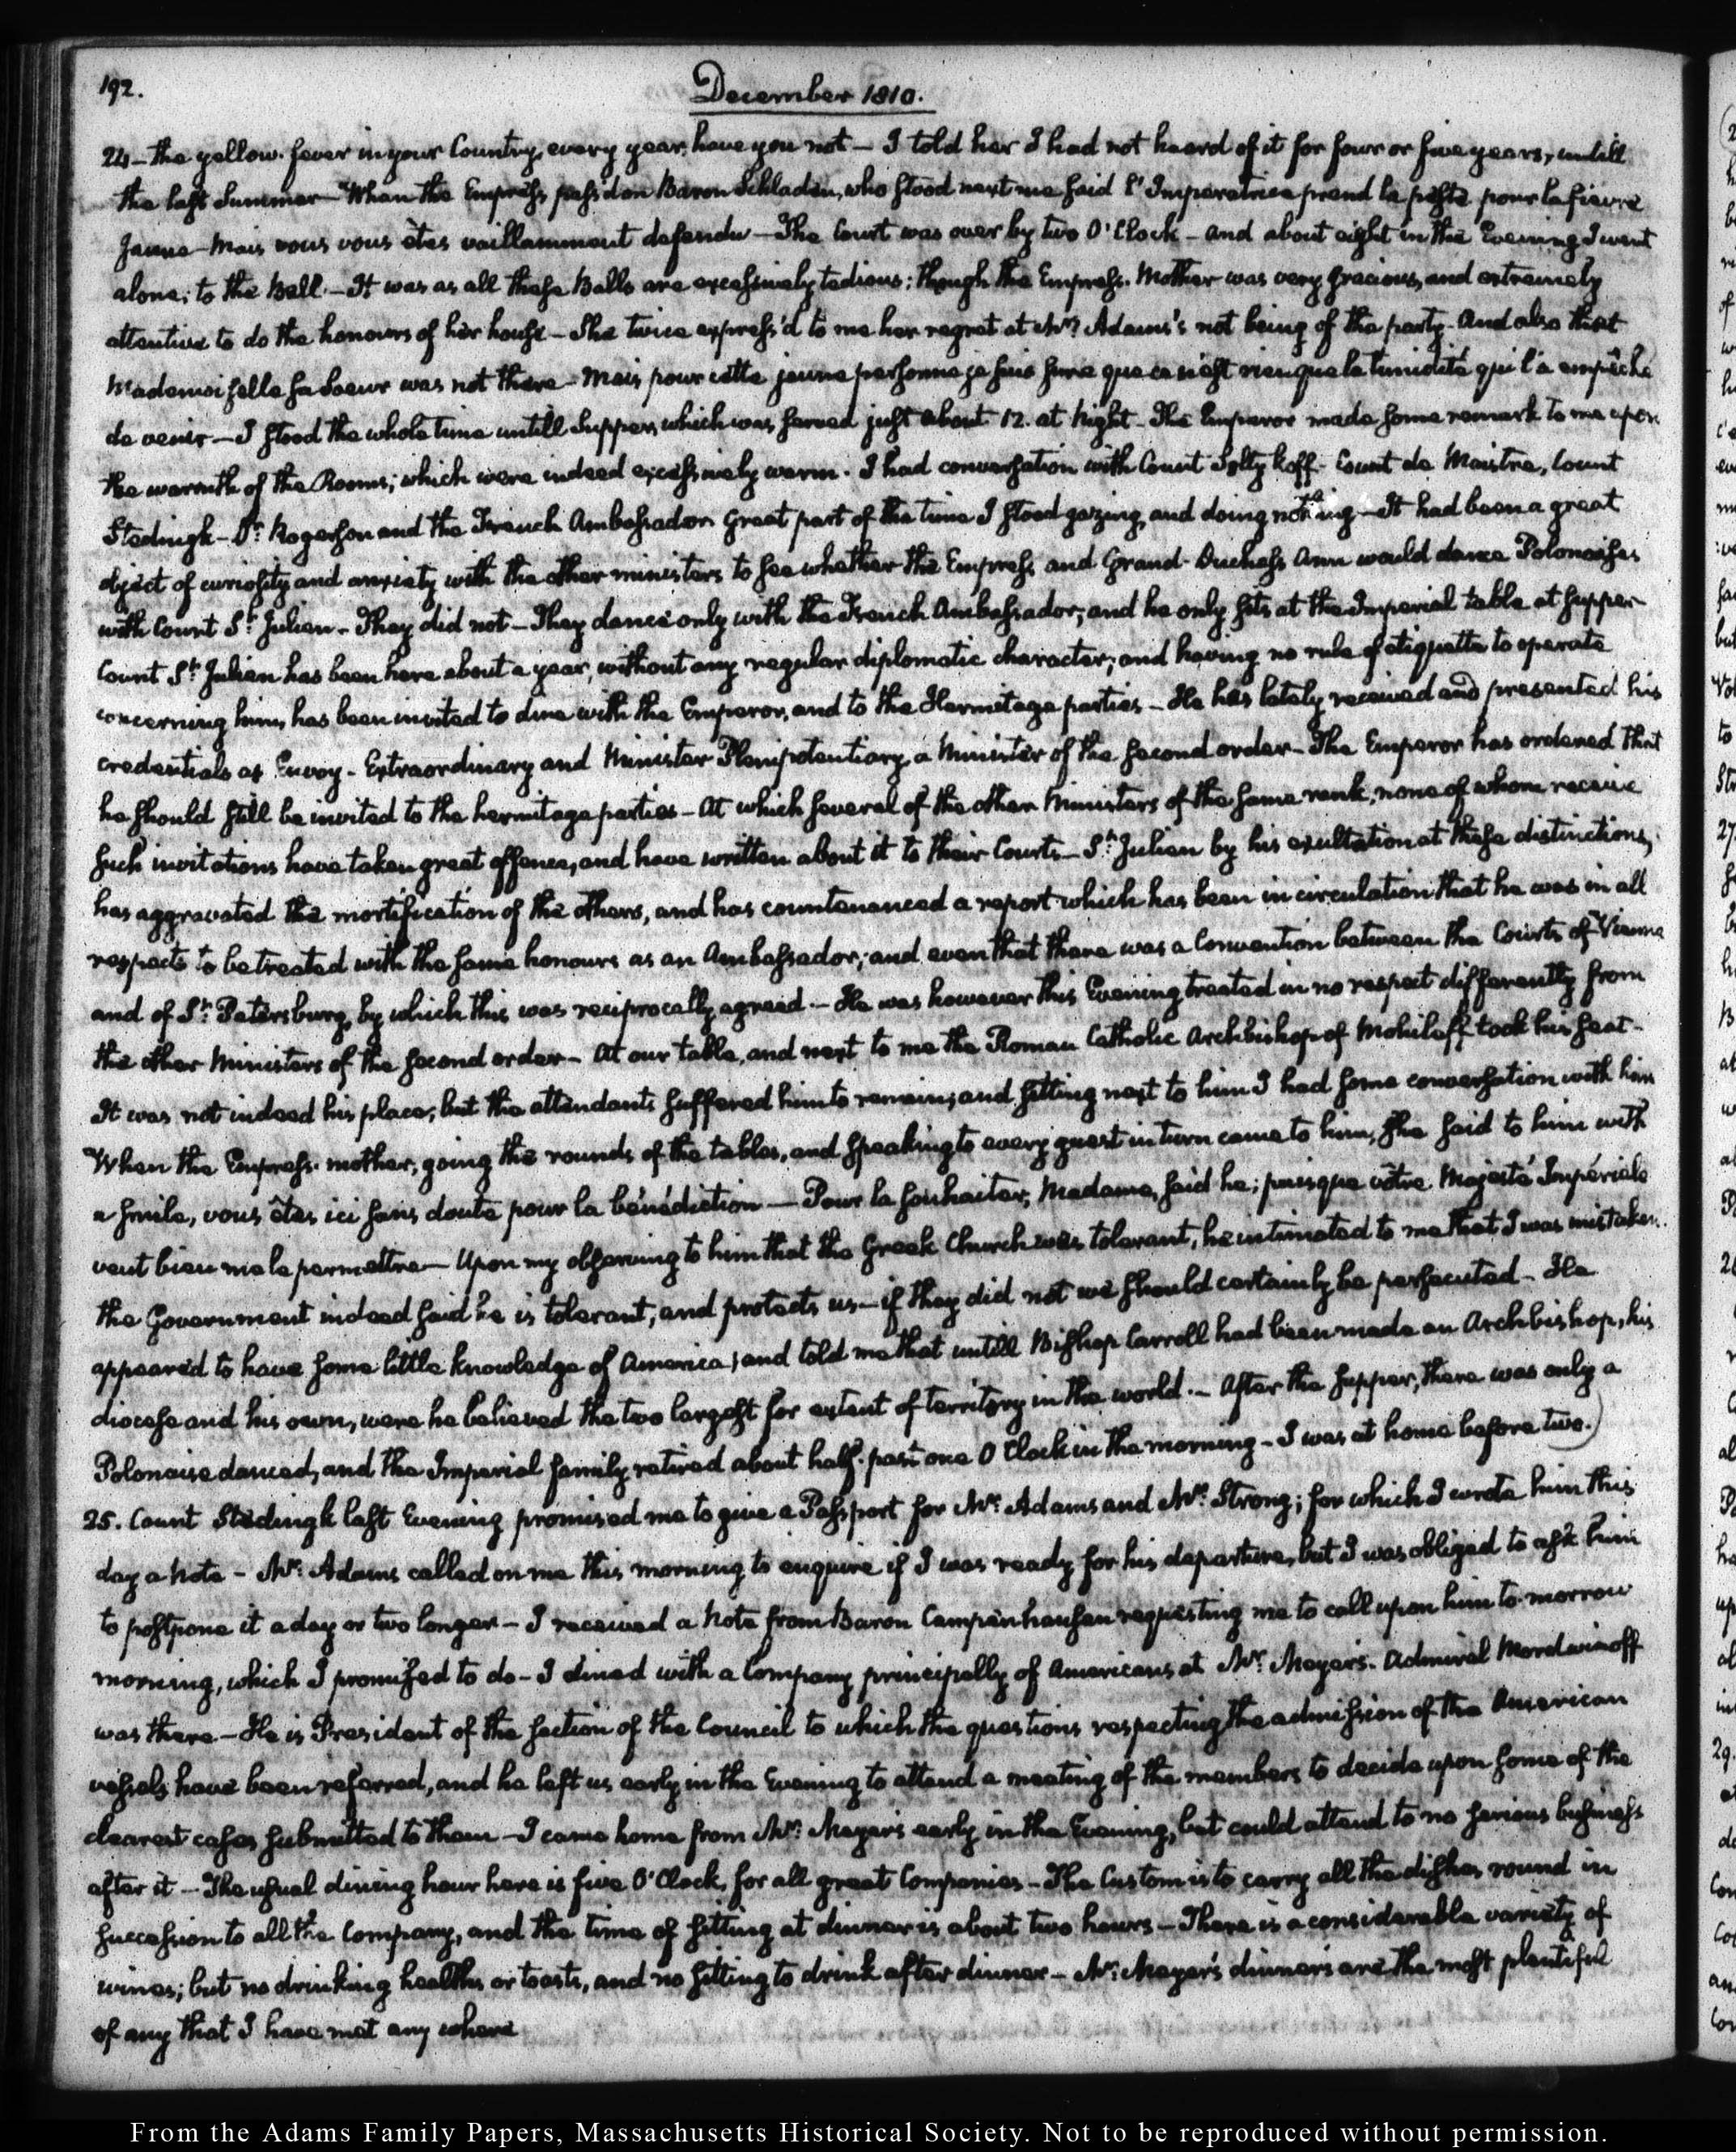 192.
December 1810.
24 - the yellow fever in your Country, every year, have you not - I told her I had not heard of it for four or five years, untill
the last Summer - When the Empress, pass'd on Baron Schladen, who stood next me said l'Imperatrice prend la peste pour la fievre
Jaune - Mais vous vous êtes vaillamment defendu - The Court was over by two O'Clock - and about eight in the Evening I went
alone, to the Ball. - It was as all these Balls are excessively tedious; though the Empress-Mother was very gracious, and extremely
attentive to do the honours of her house - She twice express'd to me her regret at Mrs. Adams's not being of the party - And also that
Mademoiselle sa Soeur was not there - Mais pour cette jeune personne je suis sure que ce n'est rien que la timidité qui l'a empêche
de venir - I stood the whole time untill Supper, which was served just about 12. at Night - The Emperor made some remark to me upon
the warmth of the Rooms; which were indeed excessively warm. I had conversation with Count Soltykoff - Count de Maistre, Count
Stedingk - Dr. Rogerson and the French Ambassador. Great part of the time I stood gazing, and doing nothing - It had been a great
object of curiosity and anxiety with the other ministers to see whether the Empress, and Grand-Duchess Ann would dance Polonaises
with Count St. Julien - They did not - They dance only with the French Ambassador; and he only sits at the Imperial table at supper -
Count St. Julien has been here about a year, without any regular diplomatic character; and having no rule of etiquette to operate
concerning him, has been invited to dine with the Emperor, and to the Hermitage parties - He has lately received and presented his
credentials as Envoy-Extraordinary and Minister Plenipotentiary, a Minister of the second order - The Emperor has ordered that
he should still be invited to the hermitage parties - At which several of the other Ministers of the same rank, none of whom receive
such invitations have taken great offence, and have written about it to their Courts - St. Julien by his exultation at these distinctions,
has aggravated the mortification of the others, and has countenanced a report which has been in circulation that he was in all
respects to be treated with the same honours as an Ambassador; and even that there was a Convention between the Courts of Vienna
and of St. Petersburg, by which this was reciprocally agreed. - He was however this Evening treated in no respect differently from
the other Ministers of the second order - At our table, and next to me the Roman Catholic Archbishop of Mohileff took his seat -
It was not indeed his place; but the attendants suffered him to remain; and sitting next to him I had some conversation with him
When the Empress-mother, going the rounds of the tables, and speaking to every guest in turn came to him, she said to him with
a smile, vous êtes ici sans doute pour la bénédiction - Pour la souhaiter, Madame, said he; puisque vôtre Majesté Impériale
veut bien me le permettre - Upon my observing to him that the Greek Church was tolerant, he intimated to me that I was mistaken.
the Government indeed said he is tolerant, and protects us - if they did not we should certainly be persecuted - He
appeared to have some little knowledge of America; and told me that untill Bishop Carroll had been made an Archbishop, his
diocese and his own, were he believed the two largest for extent of territory in the world. - After the supper, there was only a
Polonaise danced, and the Imperial family retired about half-past one O'Clock in the morning - I was at home before two.
25. Count Stedingk last Evening promised me to give a Passport for Mr. Adams and Mr. Strong; for which I wrote him this
day a Note - Mr. Adams called on me this morning to enquire if I was ready for his departure, but I was obliged to ask him
to postpone it a day or two longer - I received a Note from Baron Campenhausen requesting me to call upon him to-morrow
morning, which I promised to do - I dined with a Company principally of Americans at Mr. Meyer's. Admiral Mordwinoff
was there - He is President of the section of the Council to which the questions respecting the admission of the American
vessels have been referred, and he left us early in the Evening to attend a meeting of the members to decide upon some of the
clearest cases submitted to them - I came home from Mr. Meyer's early in the Evening, but could attend to no serious business
after it - The usual dining hour here is five O'Clock, for all great Companies - The Custom is to carry all the dishes round in
succession to all the Company, and the time of sitting at dinner is about two hours - There is a considerable variety of
wines; but no drinking healths or toasts, and no sitting to drink after dinner - Mr. Meyer's dinners are the most plentiful
of any that I have met any where
From the Adams Family Papers, Massachusetts Historical Society. Not to be reproduced without permission.